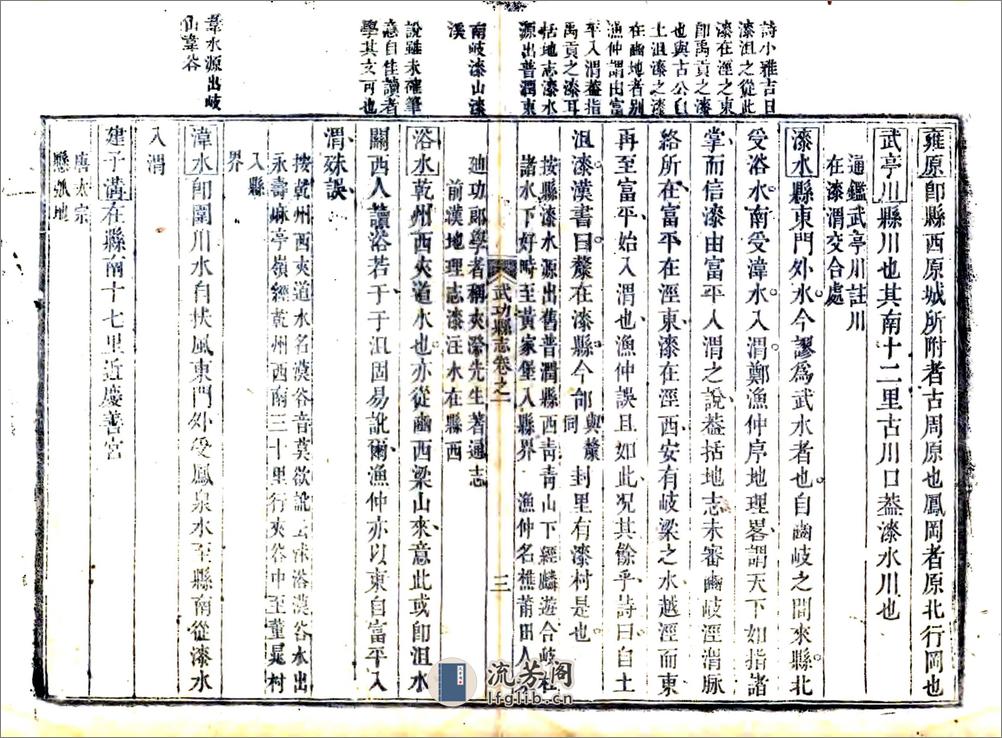 詩小雅吉日
漆沮之從此
漆在涇之東
卽禹貢之漆
也與古公自
土沮漆之漆
在豳地者別
漁仲謂由富
平入渭葢指
禹貢之漆耳
括地志漆水
源出普潤東
南岐漆山漆
溪
說雖未確筆
意自佳讀者
學其玄可也
湋水源出岐
山湋谷
雍原卽縣西原城所附者古周原也鳳岡者原北行岡也
武亭川縣川也其南十二里古川口葢漆水川也
通鑑武亭川註川
在漆渭交合處
漆水縣東門外水今謬爲武水者也自豳岐之間來縣北
受浴水南受湋水入渭鄭漁仲序地理畧謂天下如指諸
掌而信漆由富平入渭之說葢括地志未審豳岐涇渭脉
絡所在富平在涇東漆在涇西安有岐梁之水越涇而東
再至富平始入渭也漁仲誤且如此况其餘乎詩曰自土
沮漆漢書曰漦在漆縣今邰與漦同封里有漆村是也
按縣漆水源出舊普潤縣西靑靑山下經麟遊合岐杜
諸水下好畤至黃家堡入縣界 漁仲名樵莆田人
廸功郞學者稱夾漈先生著通志
前漢地理志漆汪水在縣西
武功縣志卷之一
三
浴水乾州西夾道水也亦從豳西梁山來意此或卽沮水
關西人讀浴若于于汨固易訛爾漁仲亦以東自富平入
渭殊誤
按乾州西夾道水名漠谷音莫欲訛云沐浴漠谷水出
永壽麻亭嶺經乾州西南三十里行夾谷中至董晁村
入縣
界
湋水卽圍川水自扶風東門外受鳳泉水至縣南從漆水
入渭
建子溝在縣南十七里近慶善宮
唐太宗
懸弧地
流芳阁
lfglib.cn